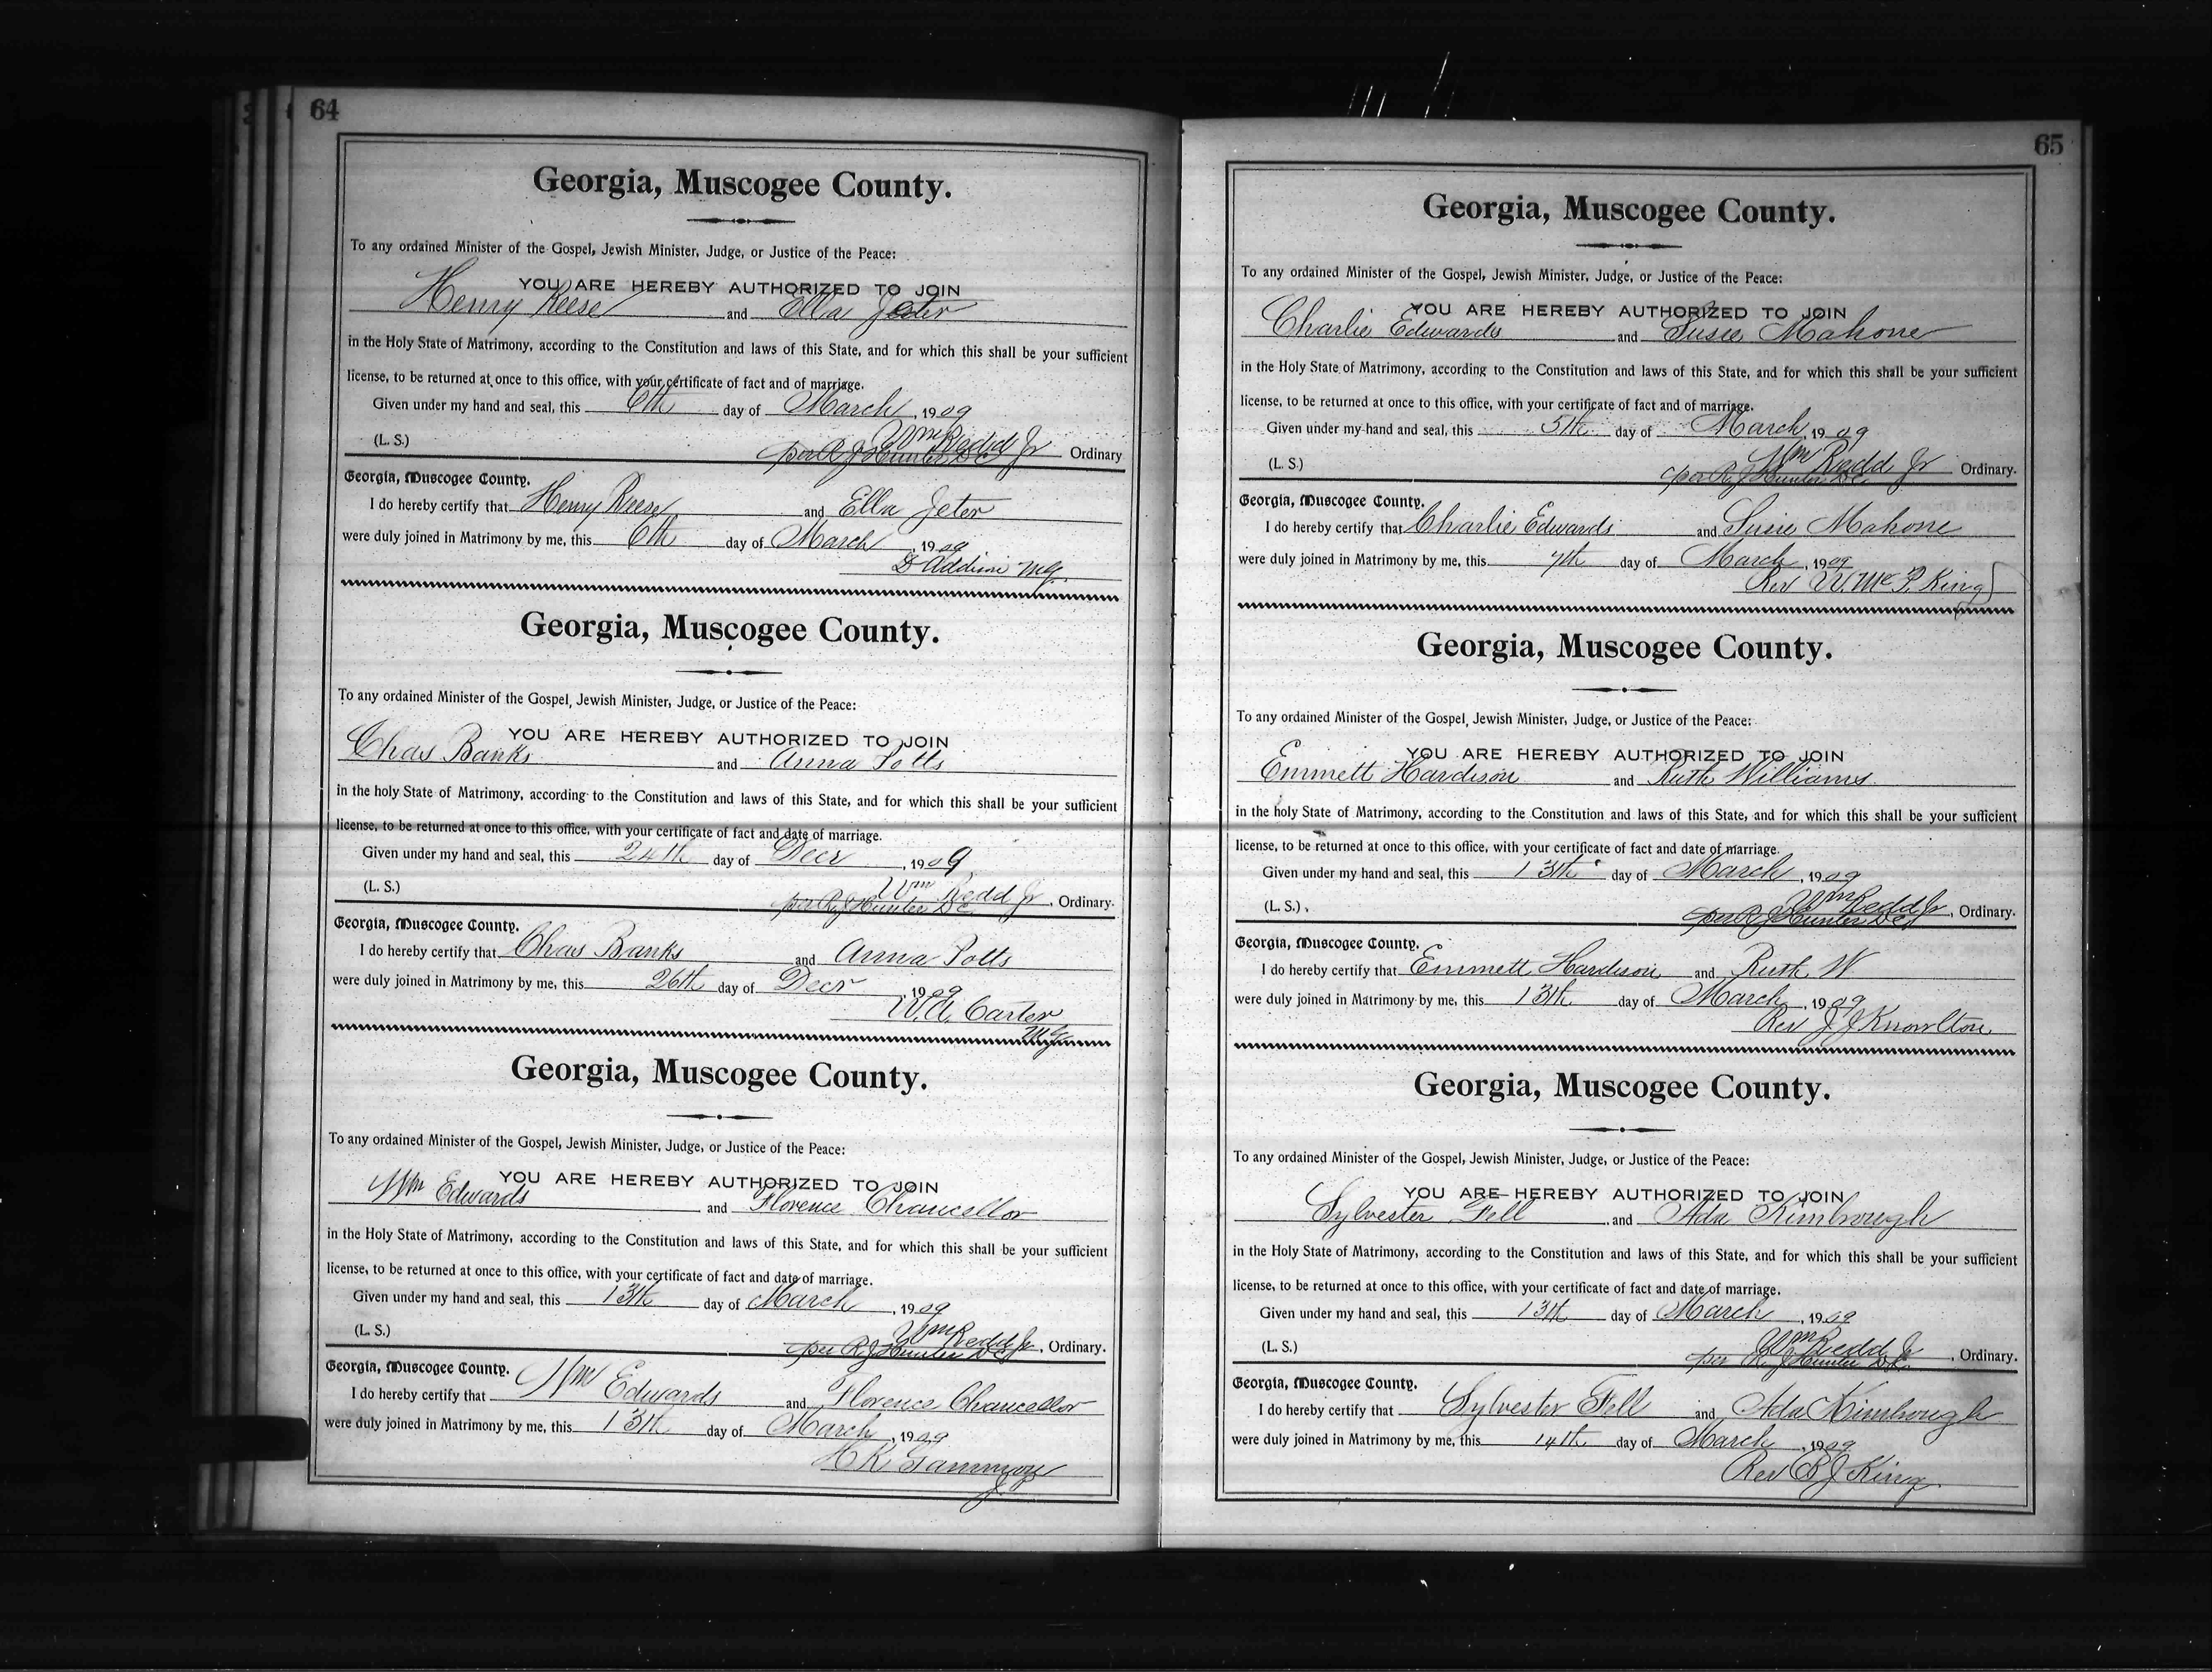 64
Georgia, Muscogee County.
To any ordained Minister of the Gospel, Jewish Minister, Judge, or Justice of the Peace:
YOU ARE HEREBY AUTHORIZED TO JOIN
Henry Reese and Ella Jeter
in the Holy State of Matrimony, according to the Constitution and laws of this State, and for which this shall be your sufficient
license, to be returned at once to this office, with your certificate of fact and of marriage.
Given under my hand and seal, this 6th day of March, 1909
(L. S.) Wm Redd Jr Ordinary
per R J Hunter D C
Georgia, Muscogee County.
I do hereby certify that Henry Reese and Ella Jeter
were duly joined in Matrimony by me, this 6th day of March, 1909
D Addison MG.
Georgia, Muscogee County.
To any ordained Minister of the Gospel, Jewish Minister, Judge, or Justice of the Peace:
YOU ARE HEREBY AUTHORIZED TO JOIN
Chas Banks and Anna Potts
in the holy State of Matrimony, according to the Constitution and laws of this State, and for which this shall be your sufficient
license, to be returned at once to this office, with your certificate of fact and date of marriage.
Given under my hand and seal, this 24th day of Decr, 1909
(L. S.) Wm Redd Jr, Ordinary.
per R J Hunter D C
Georgia, Muscogee County.
I do hereby certify that Chas Banks and Anna Potts
were duly joined in Matrimony by me, this 26th day of Decr 1909
W. A. Carter
MG
Georgia, Muscogee County.
To any ordained Minister of the Gospel, Jewish Minister, Judge, or Justice of the Peace:
YOU ARE HEREBY AUTHORIZED TO JOIN
Wm Edwards and Florence Chancellor
in the Holy State of Matrimony, according to the Constitution and laws of this State, and for which this shall be your sufficient
license, to be returned at once to this office, with your certificate of fact and date of marriage.
Given under my hand and seal, this 13th day of March, 1909
(L. S.) Wm Redd Jr, Ordinary.
per R J Hunter D C
Georgia, Muscogee County.
I do hereby certify that Wm Edwards and Florence Chancellor
were duly joined in Matrimony by me, this 13th day of March, 1909
H K
65
Georgia, Muscogee County.
To any ordained Minister of the Gospel, Jewish Minister, Judge, or Justice of the Peace:
YOU ARE HEREBY AUTHORIZED TO JOIN
Charlie Edwards and Susie Mahone
in the Holy State of Matrimony, according to the Constitution and laws of this State, and for which this shall be your sufficient
license, to be returned at once to this office, with your certificate of fact and of marriage.
Given under my hand and seal, this 5th day of March, 1909
(L. S.) Wm Redd Jr Ordinary.
per R J Hunter D C
Georgia, Muscogee County.
I do hereby certify that Charlie Edwards and Susie Mahone
were duly joined in Matrimony by me, this 7th day of March, 1909
Rev W. Mc P. King
Georgia, Muscogee County.
To any ordained Minister of the Gospel, Jewish Minister, Judge, or Justice of the Peace:
YOU ARE HEREBY AUTHORIZED TO JOIN
Emmett Hardison and Ruth Williams
in the holy State of Matrimony, according to the Constitution and laws of this State, and for which this shall be your sufficient
license, to be returned at once to this office, with your certificate of fact and date of marriage.
Given under my hand and seal, this 13th day of March, 1909
(L. S.) Wm Redd Jr, Ordinary.
per R J Hunter D C
Georgia, Muscogee County.
I do hereby certify that Emmett Hardison and Ruth W
were duly joined in Matrimony by me, this 13th day of March, 1909
Rev J J Knowlton
Georgia, Muscogee County.
To any ordained Minister of the Gospel, Jewish Minister, Judge, or Justice of the Peace:
YOU ARE HEREBY AUTHORIZED TO JOIN
Sylvester Fell and Ada Kimbrough
in the Holy State of Matrimony, according to the Constitution and laws of this State, and for which this shall be your sufficient
license, to be returned at once to this office, with your certificate of fact and date of marriage.
Given under my hand and seal, this 13th day of March, 1909
(L. S.) Wm Redd Jr, Ordinary.
per R J Hunter D C
Georgia, Muscogee County.
I do hereby certify that Sylvester Fell and Ada Kimbough
were duly joined in Matrimony by me, this 14th day of March, 1909
Rev B J King